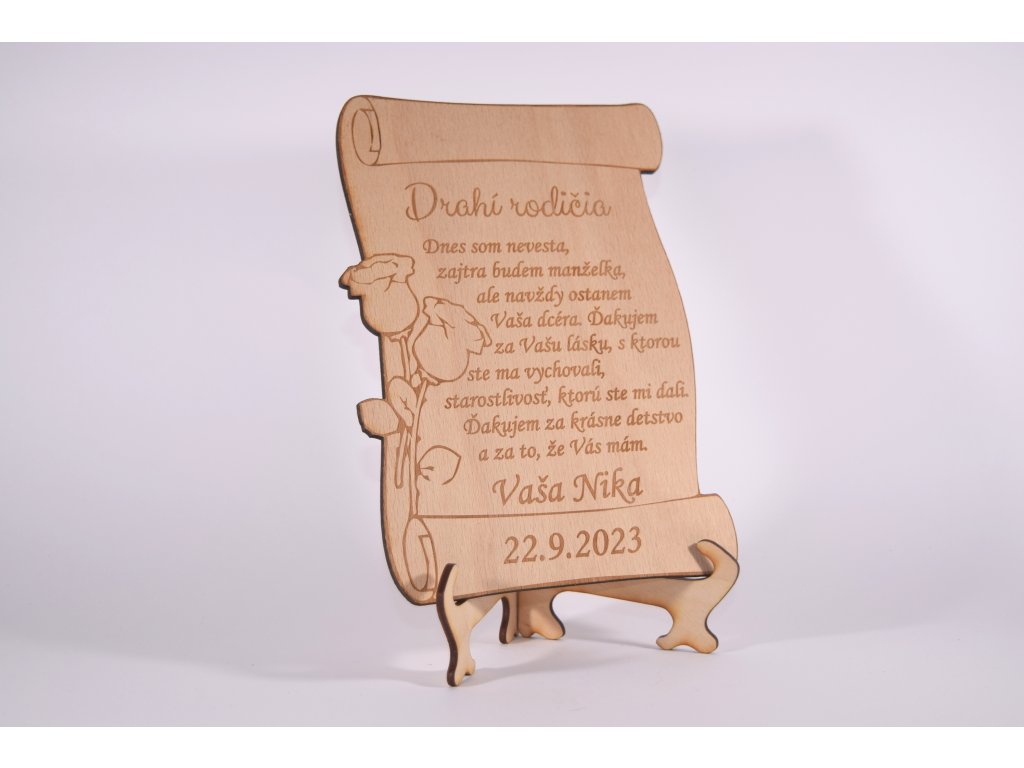 Drahí rodičia
Dnes som nevesta,
zajtra budem manželka,
ale navždy ostanem
Vaša dcéra. Ďakujem
za Vašu lásku, s ktorou
ste ma vychovali,
starostlivosť, ktorú ste mi dali.
Ďakujem za krásne detstvo
a za to, že Vás mám.
Vaša Nika
22.9.2023